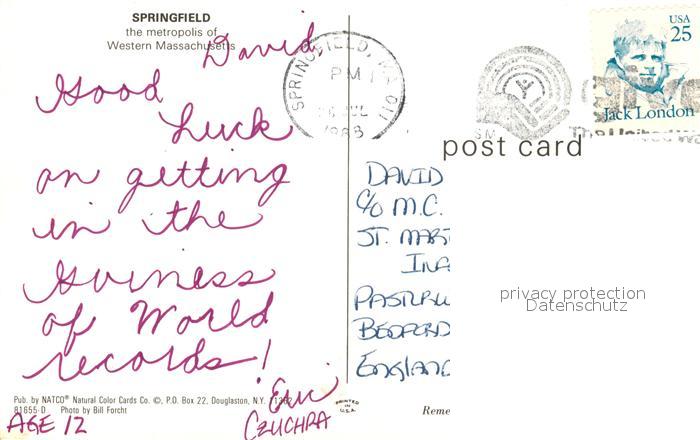 SPRINGFIELD
the metropolis of
Western Massachusetts
David
Good
Luck
on getting
in the
Guiness
of World
records!
Eric
CZUCHRA
AGE 12
Pub. by NATCO® Natural Color Cards Co. ©, P.O. Box 22, Douglaston, N.Y. 11362
81655-D Photo by Bill Forcht
PRINTED IN U.S.A.
SPRINGFIELD, MA 011
PM
JUL
1988
USA
25
Jack London
post card
DAVID
C/O M.C.
ST. MAR
INA
BEDFORD
ENGLAND
privacy protection
Datenschutz
Reme